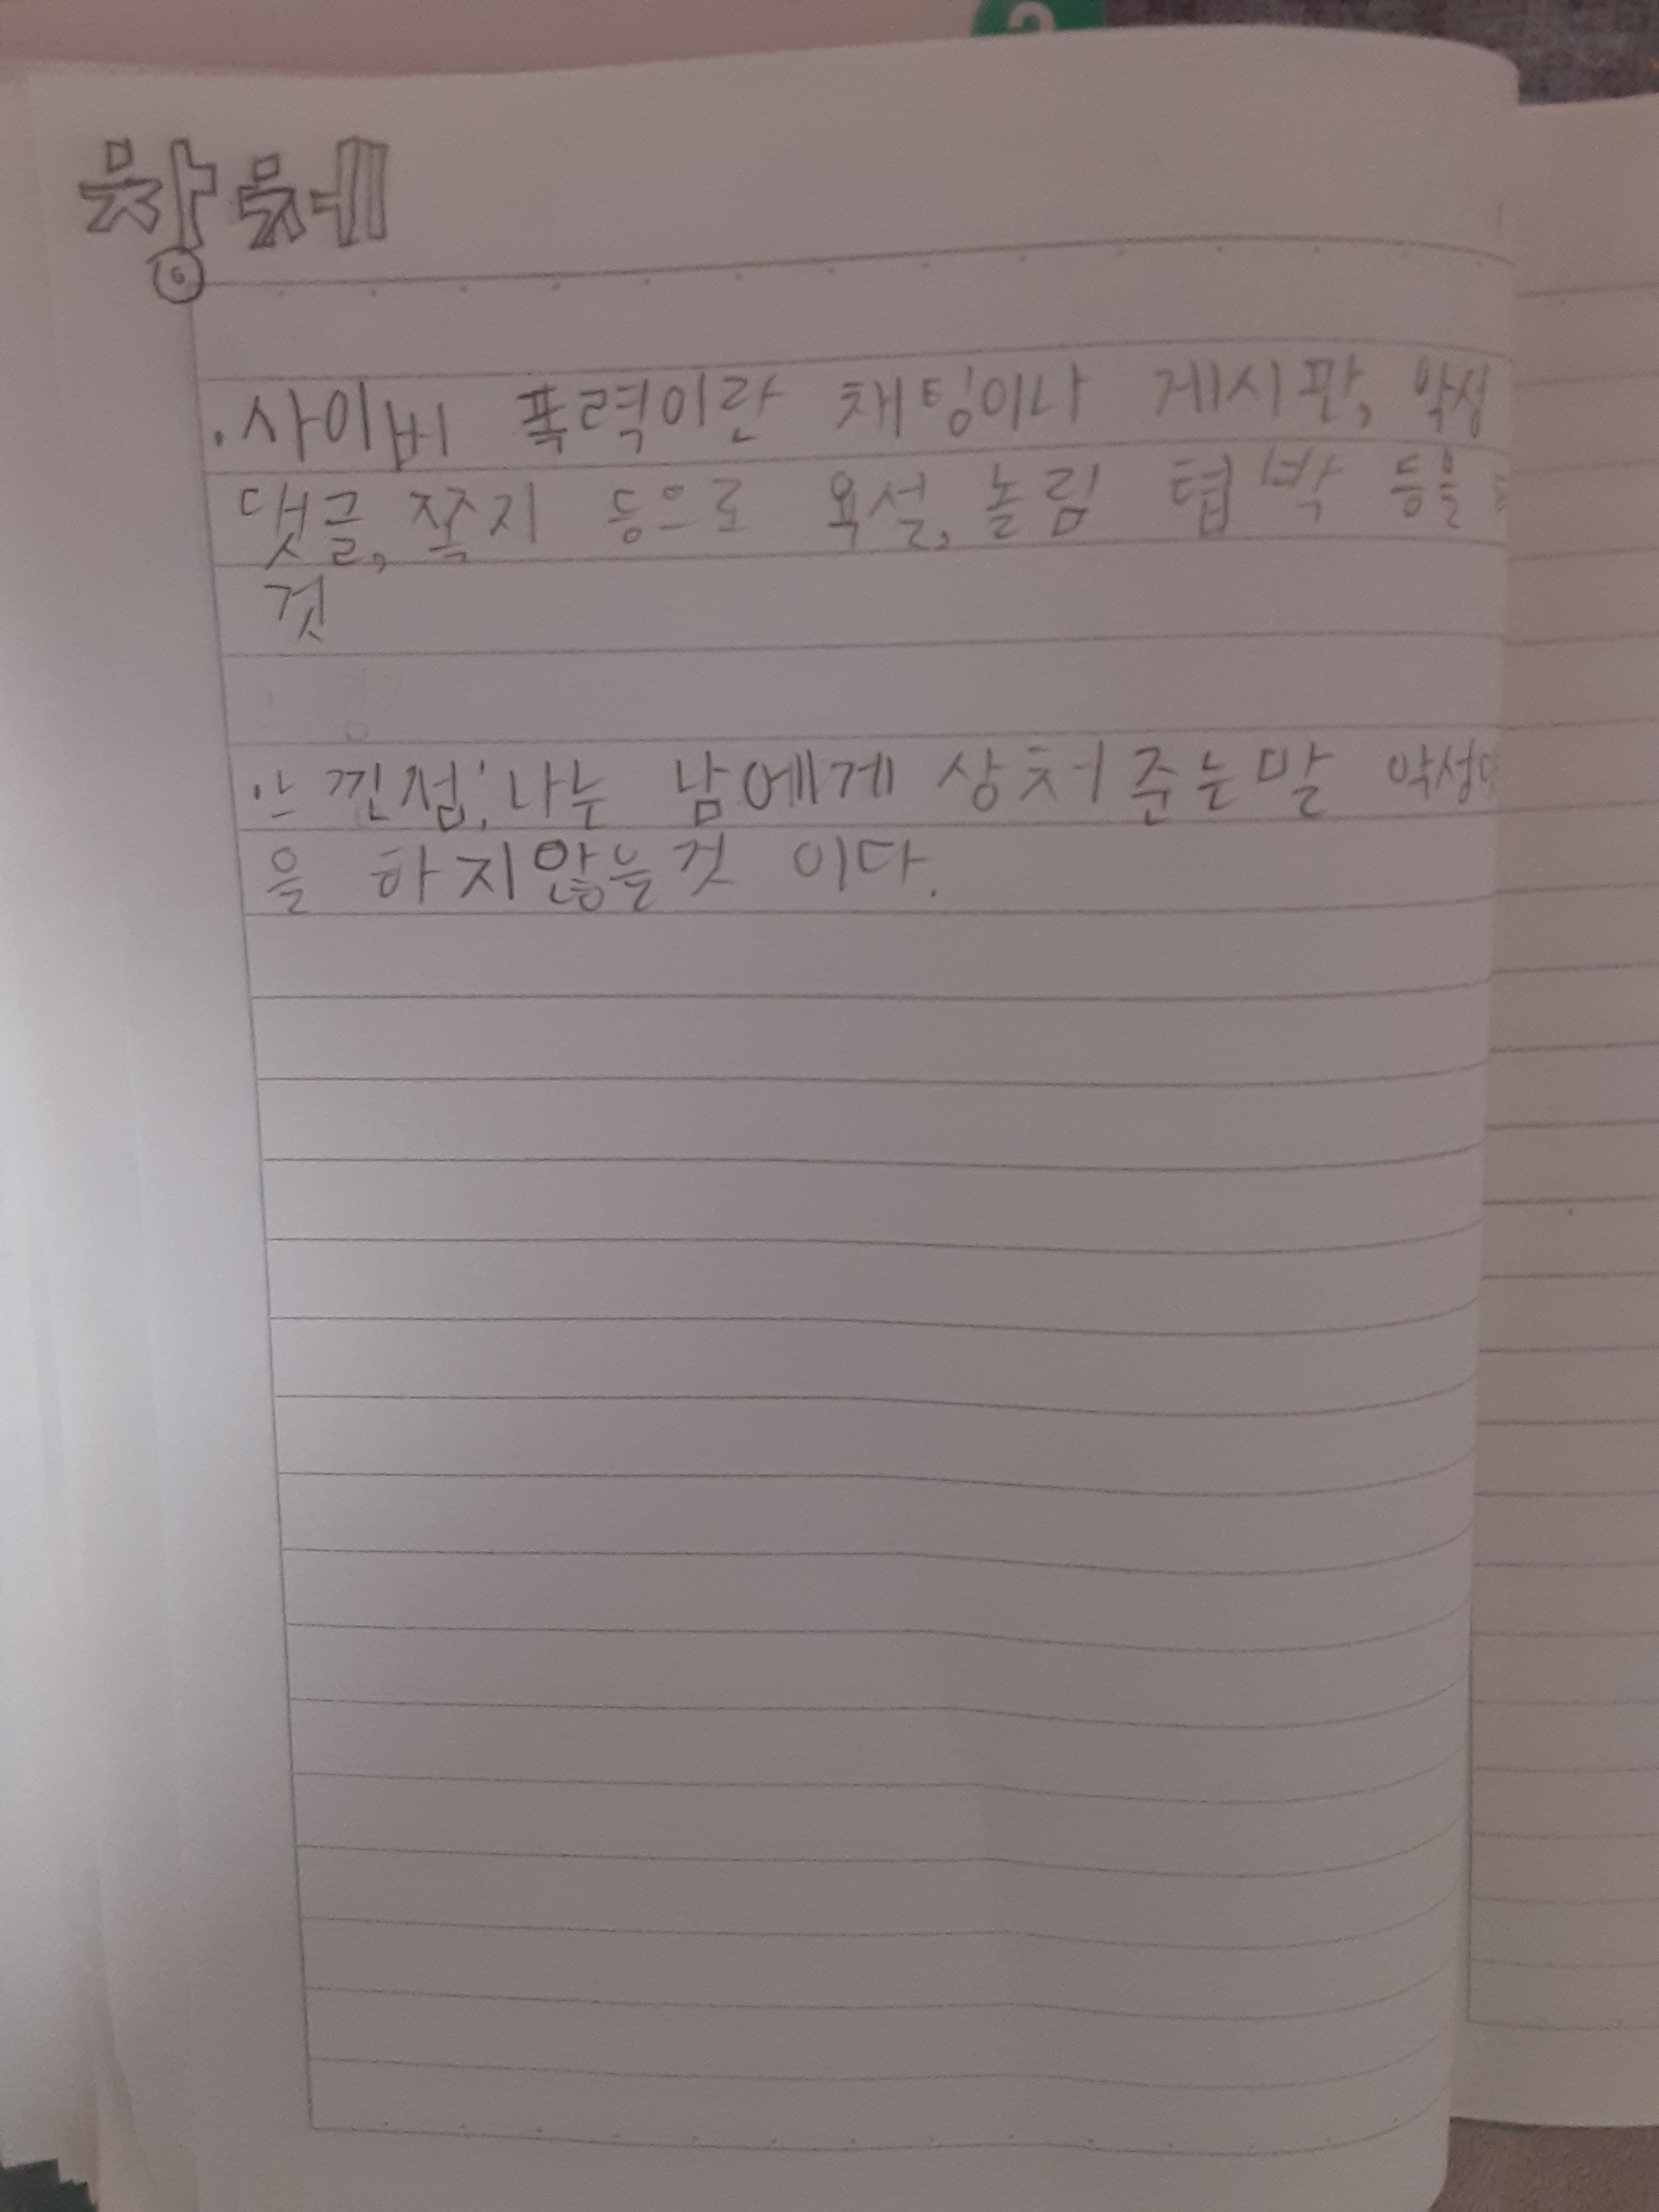 창체
·사이버 폭력이란 채팅이나 게시판, 악성
댓글, 쪽지 등으로 욕설, 놀림 협박 등을
것
느낀점: 나는 남에게 상처 주는말 악성
을 하지않을것 이다.